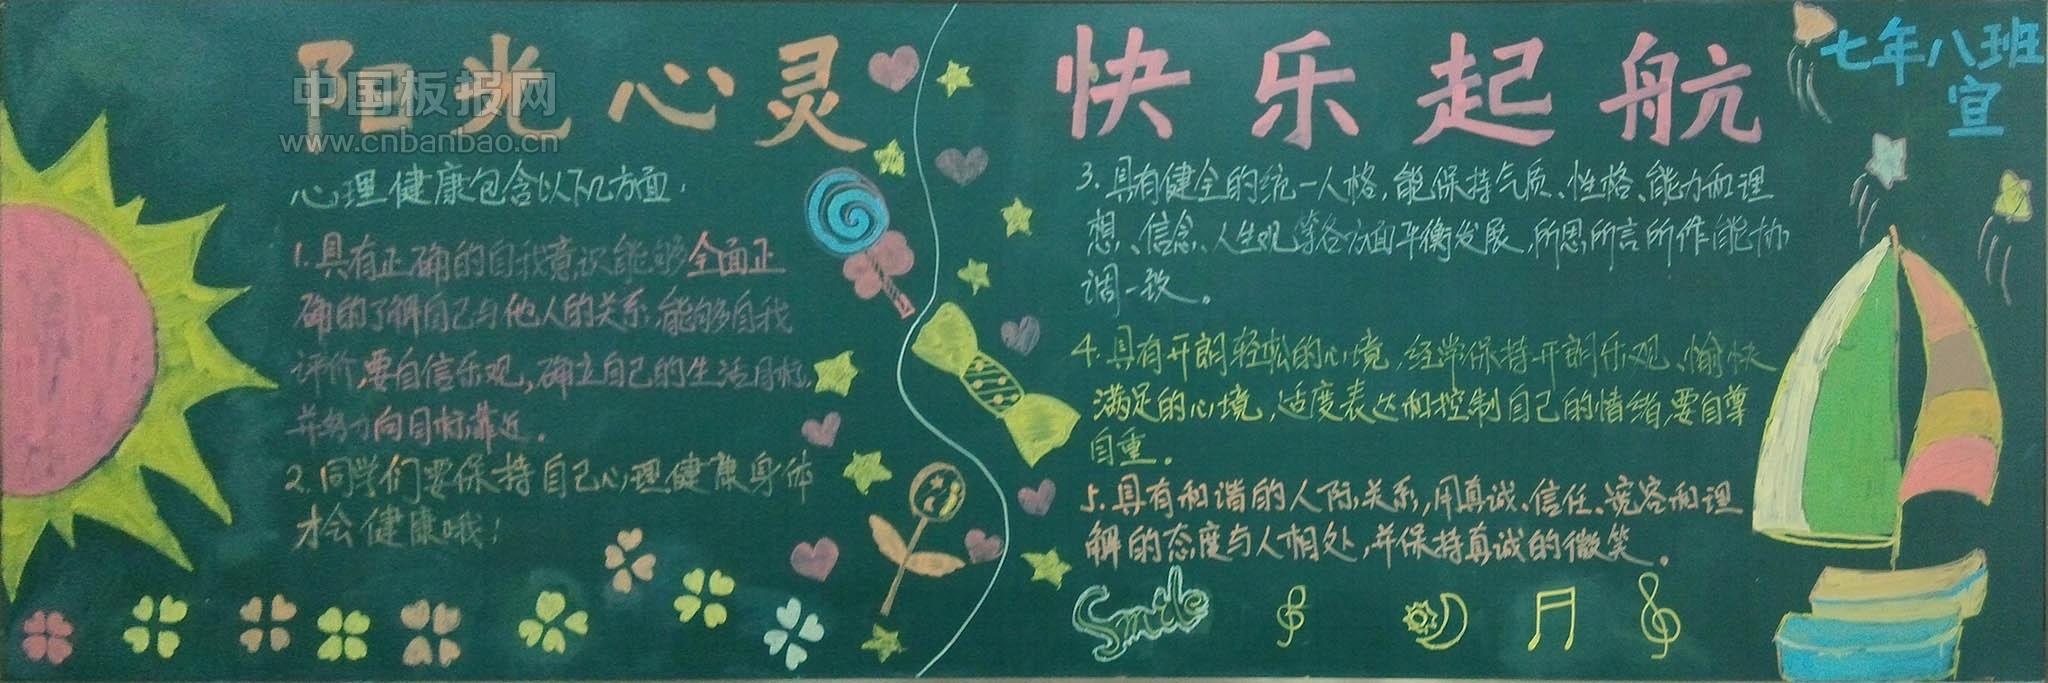 阳光心灵
快乐起航
七年八班
宣
中国板报网
www.cnbanbao.cn
心理健康包含以下几方面.
1.具有正确的自我意识能够全面正
确的了解自己与他人的关系,能够自我
评价,要自信乐观,确立自己的生活目标,
并努力向目标靠近.
2.同学们要保持自己心理健康身体
才会健康哦!
3.具有健全的统一人格,能保持气质、性格、能力和理
想、信念、人生观等各方面平衡发展,所思所言所作能协
调一致。
4.具有开朗轻松的心境,经常保持开朗乐观、愉快
满足的心境,适度表达和控制自己的情绪,要自尊
自重.
5.具有和谐的人际关系,用真诚、信任、宽容和理
解的态度与人相处,并保持真诚的微笑。
Smile